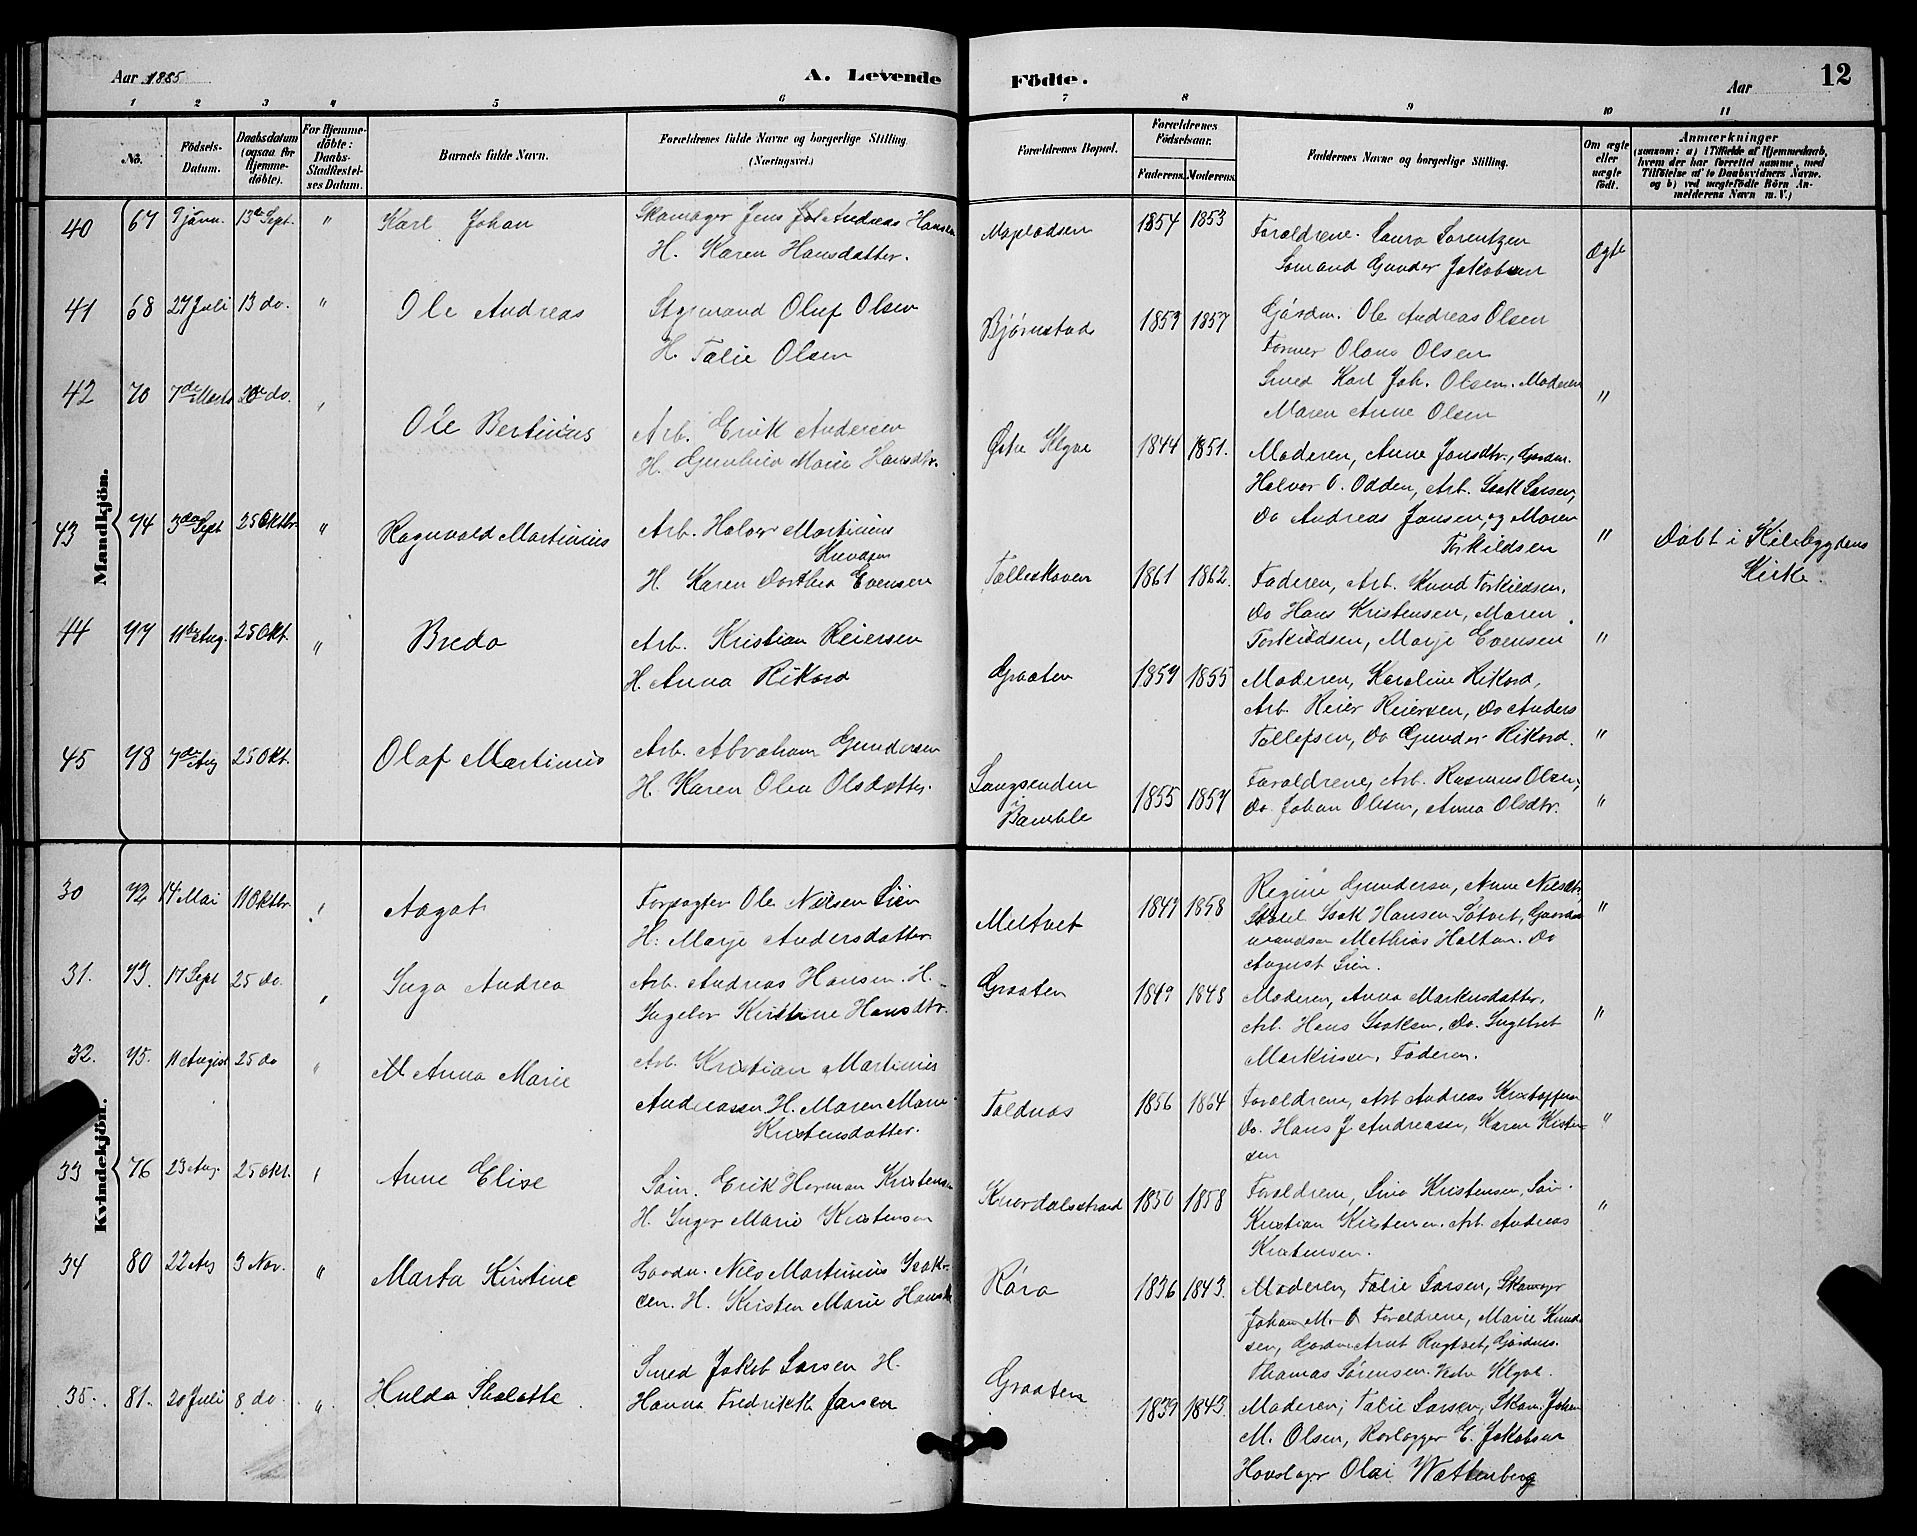 Aar 1885
A. Levende Födte.
Aar
12
1 2 3 4 5 6 7 8 9 10 11
No.
Födsels-Datum.
Daabsdatum (ogsaa for Hjemme-döbte).
For Hjemme-döbte: Daabs-Stadfestel-ses Datum.
Barnets fulde Navn.
Forældrenes fulde Navne og borgerlige Stilling. (Næringsvei.)
Forældrenes Bopæl.
Forældrenes Födselsaar.
Faderens. Moderens.
Faddernes Navne og borgerlige Stilling.
Om ægte eller uægte födt.
Anmærkninger
(saasom: a) i Tilfælde af Hjemmedaab, hvem der har forrettet samme, med Tilföielse af to Daabsvidners Navne. og b) ved uægtefödte Börn An-melderens Navn m. V.)
Mandkjön.
40 67 9 jann. 13de Sept. " Karl Johan
Skomager Jens Andreas Hansen
H. Karen Hansdatter.
1854 1853
Forældrene. Laura Lorentzen
Sømand Gunder Jakobsen
Ægte
41 68 27 Juli 13 do. " Ole Andreas
Styrmand Oluf Olsen
H. Talie Olsen
Bjørnstad 1859 1857
Gårdm. Ole Andreas Olsen
Former Olaus Olsen
Smed Karl Joh. Olsen. Moderen
Maren Anne Olsen
"
42 70 7de Marts 20 do. " Ole Bertinius
Arb. Erik Andersen
H. Gunhild Marie Hansdtr.
Østre Klyve 1844 1851.
Moderen, Anne Jansdtr., Gårdm.
Halvor O. Odden, Arb. Isak Larsen,
Do Andreas Jansen, og Maren
Torkildsen
"
43 74 3die Sept 25 Oktbr. " Ragnvald Martinius
Arb. Halvor Martinius
H. Karen Dorthea Evensen
Tolleskoven 1861 1862.
Faderen, Arb. Knud Torkildsen,
Do Hans Kristensen, Maren
Torkildsen, Marje Evensen
"
Døbt i Kilebygdens
Kirke.
44 77 11te Aug. 25 Okt. " Bredo
Arb. Kristian Reiersen
H. Anna Rikord
Graaten 1859 1855
Moderen, Karoline Rikord,
Arb. Reier Reiersen, Do Anders
Tollefsen, Do Gunder Rikord.
"
45 78 7de Aug 25 Okt. Olaf Martinius
Arb. Abraham Gundersen
H. Karen Olea Olsdatter.
Langsenden
i Bamble 1855 1857
Forældrene, Arb. Rasmus Olsen,
Do. Johan Olsen, Anna Olsdtr.
"
Kvindekjön.
30 72 14 Mai 11 Oktbr. " Aagot
Forpagter Ole Nielsen Lien
H. Marje Andersdatter.
Meltvet 1849 1858
Regine Gundersen, Anne Nielsdtr,
Isak Hansen Søtvet, Gaard-
mandsøn Mathias Holtan. Do
August Lien.
"
31. 73. 17 Sept 25 do. " Inga Andrea
Arb. Andreas Hansen. H.
Ingebor Kirstine Hansdtr.
Graaten 1849 1848
Moderen, Anna Markusdatter.
Arb. Hans Isaksen, Do. Ingebret
Markussen, Faderen.
"
32. 75. 11 August 25 do " Anna Marie
Arb. Kristian Martinius
Andreassen, H. Maren Marie
Kristensdatter.
Toldnæs 1856 1864
Forældrene, Arb Andreas Kristoffersen
Do. Hans J. Andreassen, Karen Kisten-
sen
"
33 76 23 Aug. 25 Okt. " Anne Elise
Søm. Erik Herman Kristensen
H. Inger Marie Kristensen
Knardalsstrand 1850 1858
Forældrene, Lina Kristensen, Søm.
Kristian Kistensen. Arb. Andreas
Kristensen.
"
34 80 22 Aug 3 Nov. " Marta Kirstine
Gårdm. Nils Martinius Isak-
sen. H. Kirsten Marie Hansdtr
Røra 1836 1843.
Moderen, Talie Larsen, Skomager
Johan M. O Forældrene, Marie Knud-
sen,
Thomas Sørensen Vestre Klyve.
35. 81. 20 Juli 8 do. " Hulda Skalotte
Smed Jakob Larsen H.
Hanna Fredrikke Jansen
Graaten 1839 1843.
Moderen, Talie Larsen, Skom. Johan
M. Olsen, E. Jakobsen
Olai Wattenberg